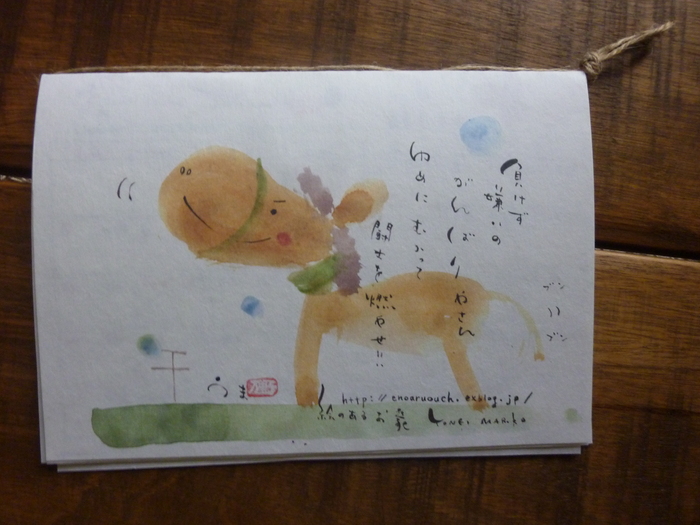 負けず
嫌いの
がんばりやさん
ゆめに むかって
闘士を燃やせ!!
ブン
ブン
午
うま
http://enoaruouch.exblog.jp/
絵のあるお家
YONEI MARIKO